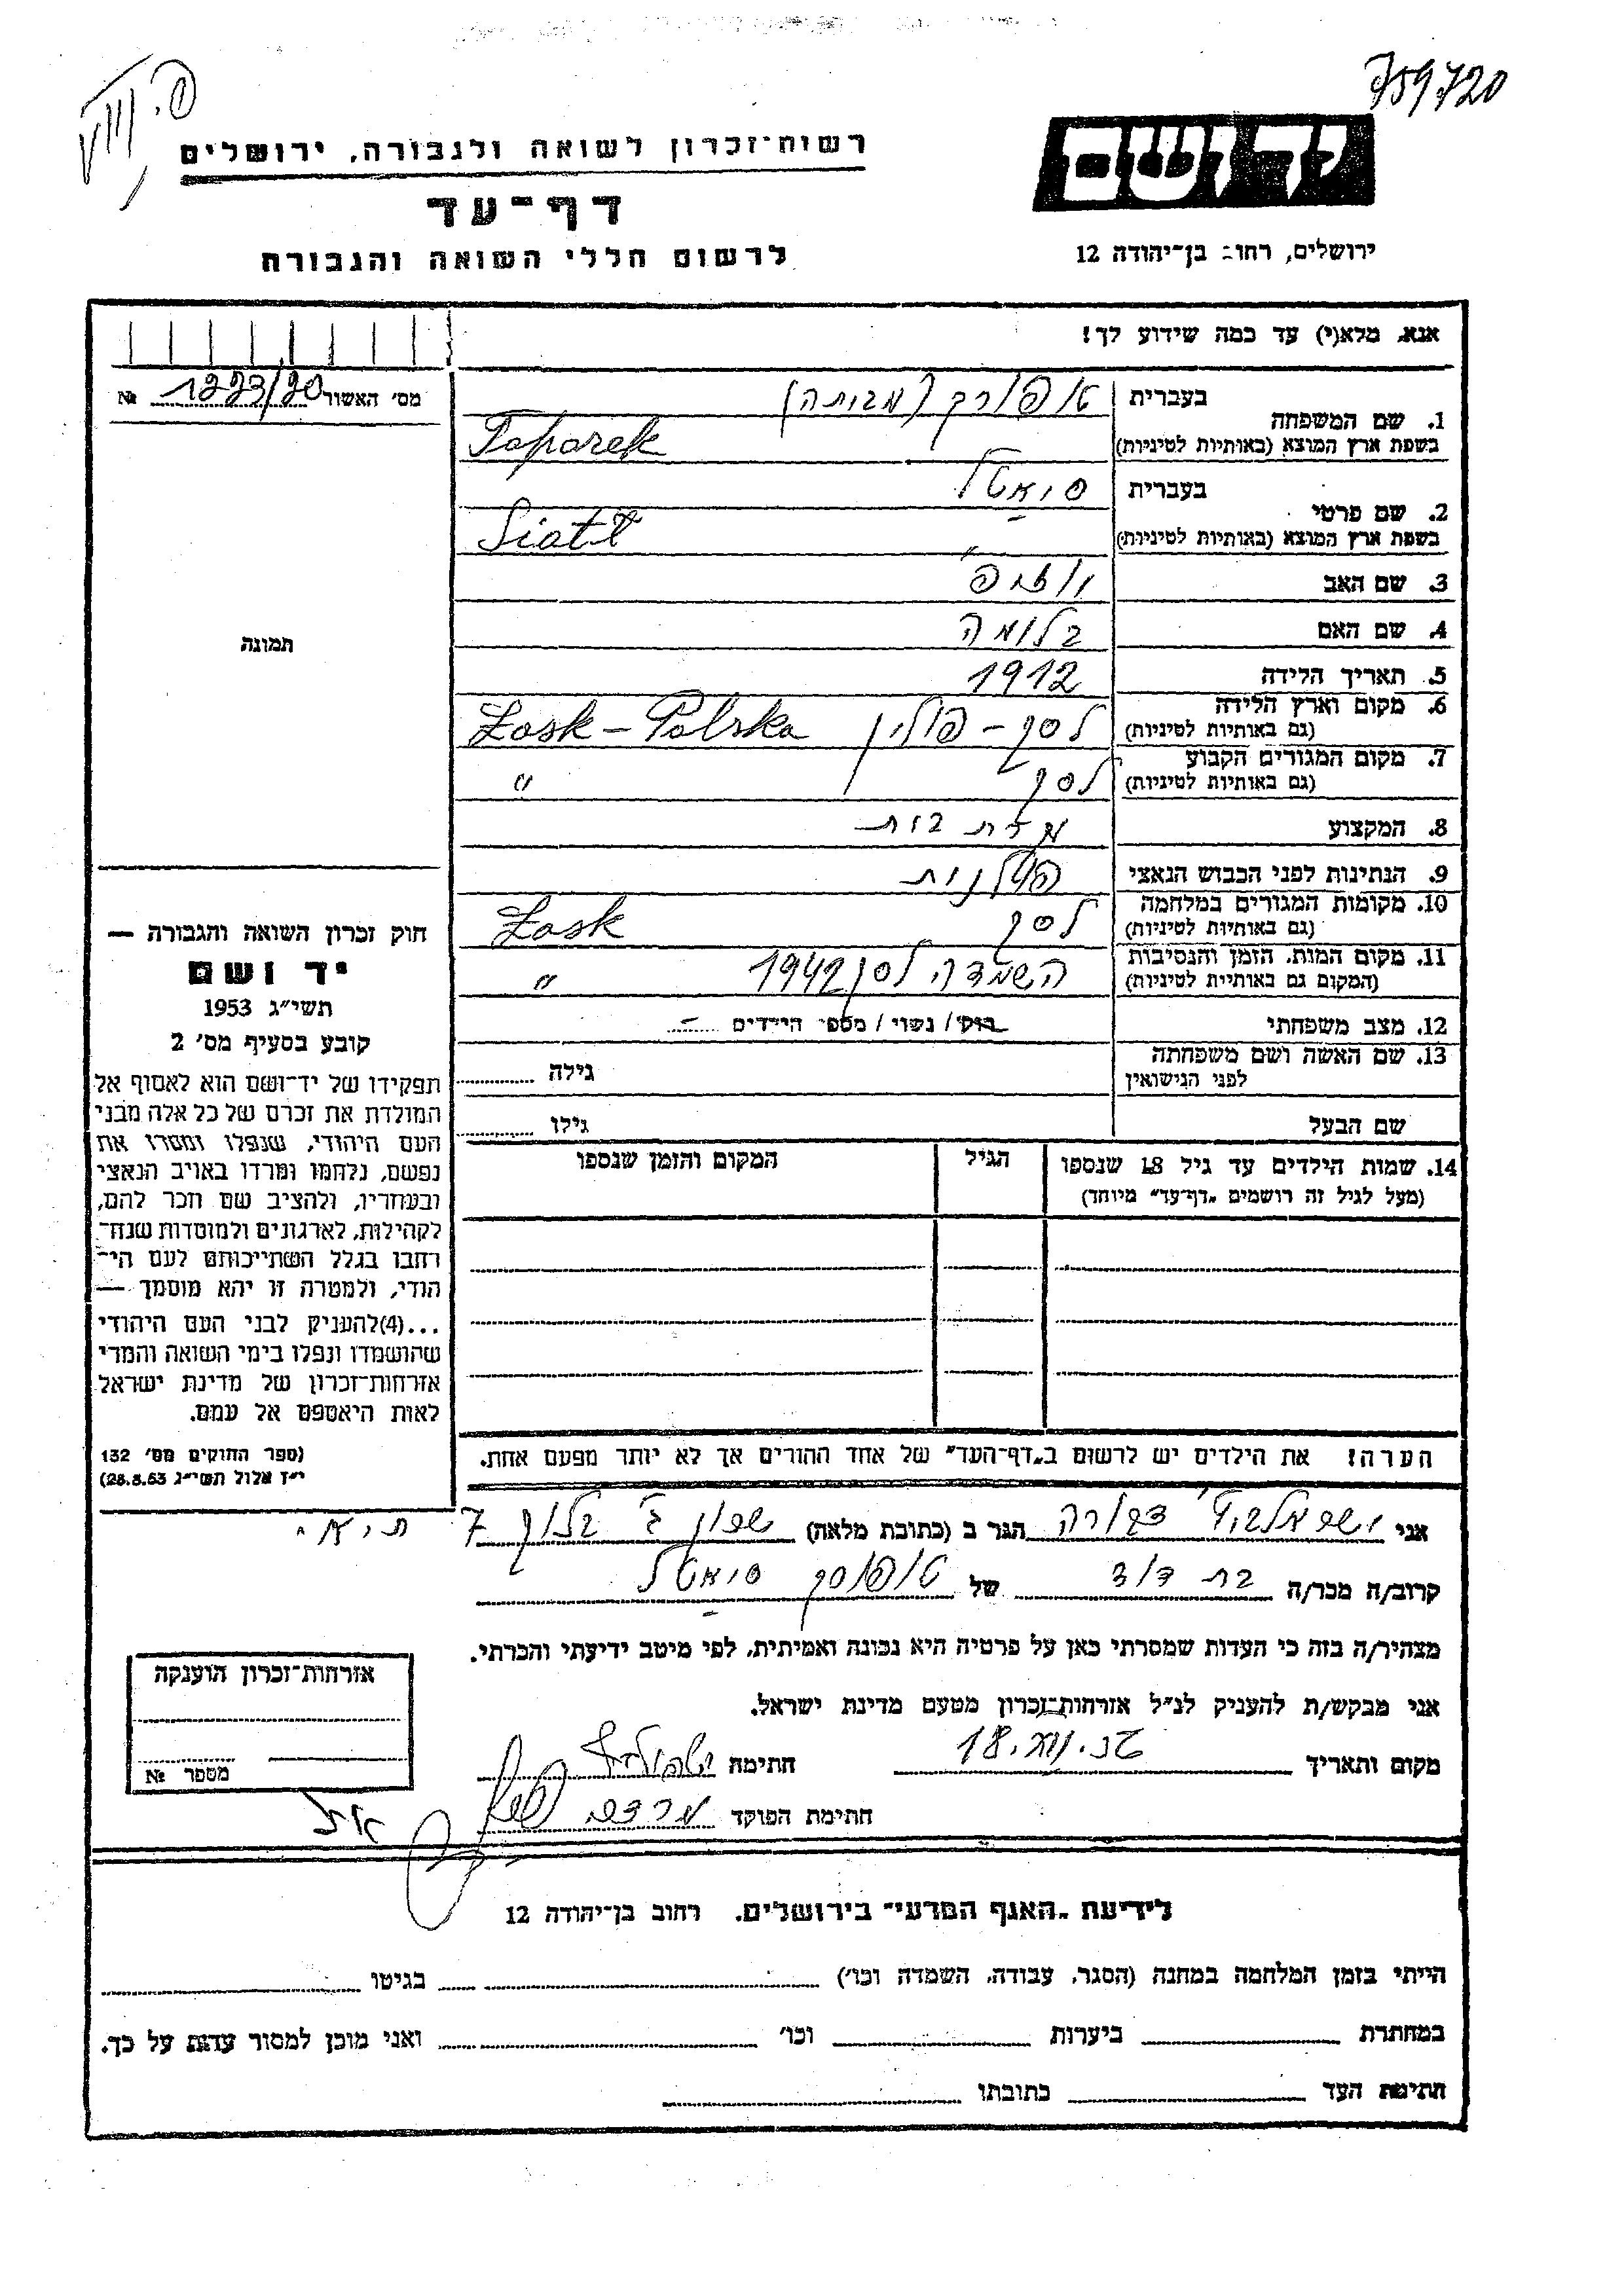 759720
יד ושם
ירושלים, רחוב בן־יהודה 12
רשות־זכרון לשואה ולגבורה, ירושלים
דף־עד
לרשום חללי השואה והגבורה
אנא, מלא(י) עד כמה שידוע לך!
מס׳ האשור 1223/20 №
תמונה
1. שם המשפחה
בעברית טופורק
בשפת ארץ המוצא (באותיות לטיניות) Toporek
2. שם פרטי
בעברית סיאטל
בשפת ארץ המוצא (באותיות לטיניות) Siatl
3. שם האב
4. שם האם בלומה
5. תאריך הלידה 1912
6. מקום וארץ הלידה לסק - פולין Łask - Polska
(גם באותיות לטיניות)
7. מקום המגורים הקבוע לסק "
(גם באותיות לטיניות)
8. המקצוע
9. הנתינות לפני הכבוש הנאצי פולנית
10. מקומות המגורים במלחמה לסק Łask
(גם באותיות לטיניות)
11. מקום המות, הזמן והנסיבות השמדה לסק 1942 "
(המקום גם באותיות לטיניות)
12. מצב משפחתי רוק/ נשוי/ מספר הילדים
13. שם האשה ושם משפחתה גילה
לפני הנישואין
שם הבעל גילו
14. שמות הילדים עד גיל 18 שנספו הגיל המקום והזמן שנספו
(מעל לגיל זה רושמים "דף־עד" מיוחד)
הערה! את הילדים יש לרשום ב"דף־העד" של אחד ההורים אך לא יותר מפעם אחת.
חוק זכרון השואה והגבורה —
יד ושם
תשי״ג 1953
קובע בסעיף מס׳ 2
תפקידו של יד־ושם הוא לאסוף אל
המולדת את זכרם של כל אלה מבני
העם היהודי, שנפלו ומסרו את
נפשם, נלחמו ומרדו באויב הנאצי
ובעוזריו, ולהציב שם וזכר להם,
לקהילות, לארגונים ולמוסדות שנח־
רבו בגלל השתייכותם לעם הי־
הודי, ולמטרה זו יהא מוסמך —
...(4)להעניק לבני העם היהודי
שהושמדו ונפלו בימי השואה והמרי
אזרחות־זכרון של מדינת ישראל
לאות היאספם אל עמם.
(ספר החוקים מס׳ 132
י״ז אלול תשי״ג 28.8.53)
אני דבורה הגר ב (כתובת מלאה) 7
קרוב/ה מכר/ה בת דוד של סיאטל
מצהיר/ה בזה כי העדות שמסרתי כאן על פרטיה היא נכונה ואמיתית, לפי מיטב ידיעתי והכרתי.
אני מבקש/ת להעניק לנ״ל אזרחות־זכרון מטעם מדינת ישראל.
מקום ותאריך חתימה
חתימת הפוקד
אזרחות־זכרון הוענקה
מספר №
לידיעת "האגף המדעי" בירושלים, רחוב בן־יהודה 12
הייתי בזמן המלחמה במחנה (הסגר, עבודה, השמדה וכו׳) בגיטו
במחתרת ביערות וכו׳ ואני מוכן למסור עדות על כך.
חתימת העד כתובתו